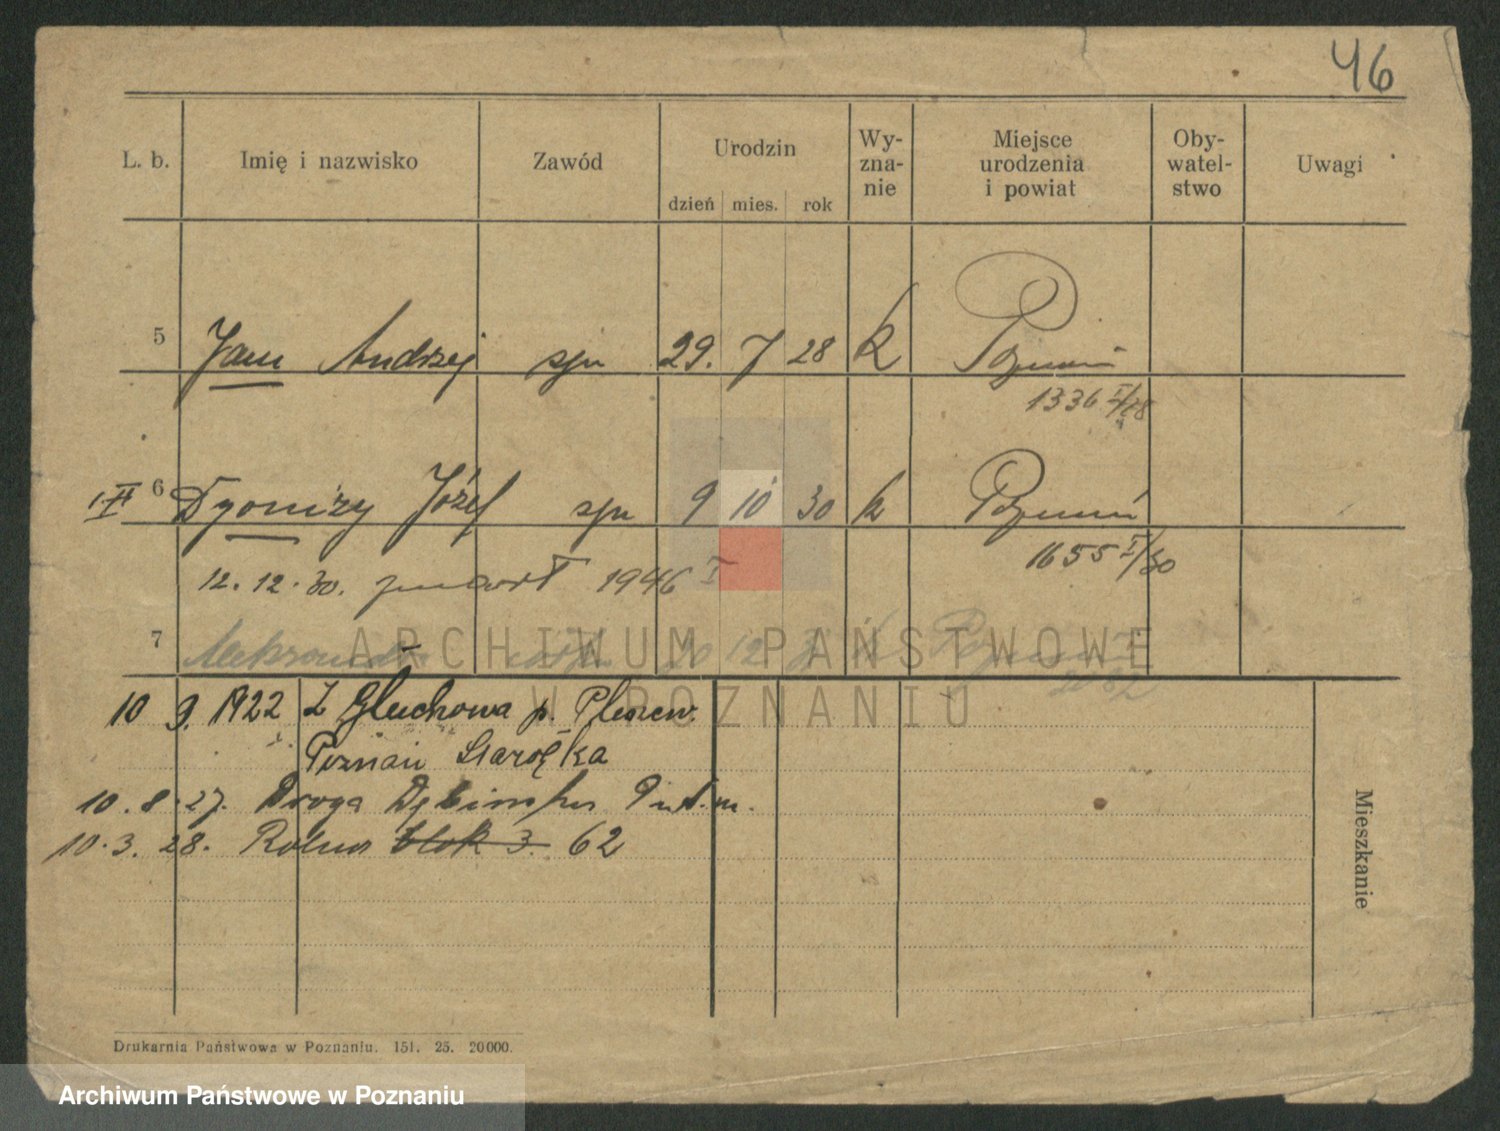 46
L. b. Imię i nazwisko Zawód Urodzin Wy-zna-nie Miejsce urodzenia i powiat Oby-watel-stwo Uwagi
dzień mies. rok
5 Jan Andrzej syn 29. 7 28 k Poznań
1336 I/28
6 Dyonizy Józef syn 9 10 30 k Poznań
1655 I/30
12. 12. 30. zmarł 1946 I
7 12
ARCHIWUM PAŃSTWOWE
W POZNANIU
10 9. 1922 Z Głuchowa p. Pleszew.
Poznań Starołęka
10. 8. 27. Droga Dębińska
10. 3. 28. Rolna blok 3. 62
Mieszkanie
Drukarnia Państwowa w Poznaniu. 151. 25. 20000.
Archiwum Państwowe w Poznaniu